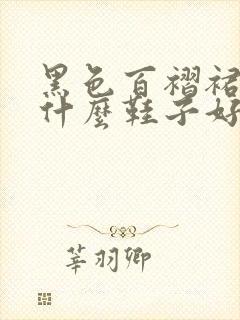 黑色百褶裙
什麼鞋子好
莘羽卿